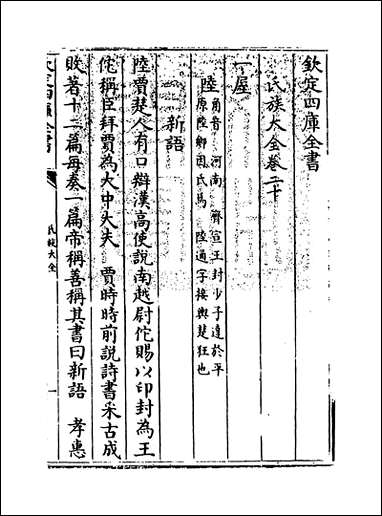 欽定四庫全書
氏族大全卷二十
一屋
陸
角音 河南 齊宣王封少子達於平
原陸鄉因氏焉 陸通字接輿楚狂也
新語
陸賈楚人有口辯漢高使說南越尉佗賜以印封為王
佗稱臣拜賈為大中大夫 賈時時前說詩書采古成
敗著十二篇每奏一篇帝稱善稱其書曰新語 孝惠
欽定四庫全書
氏族大全
一